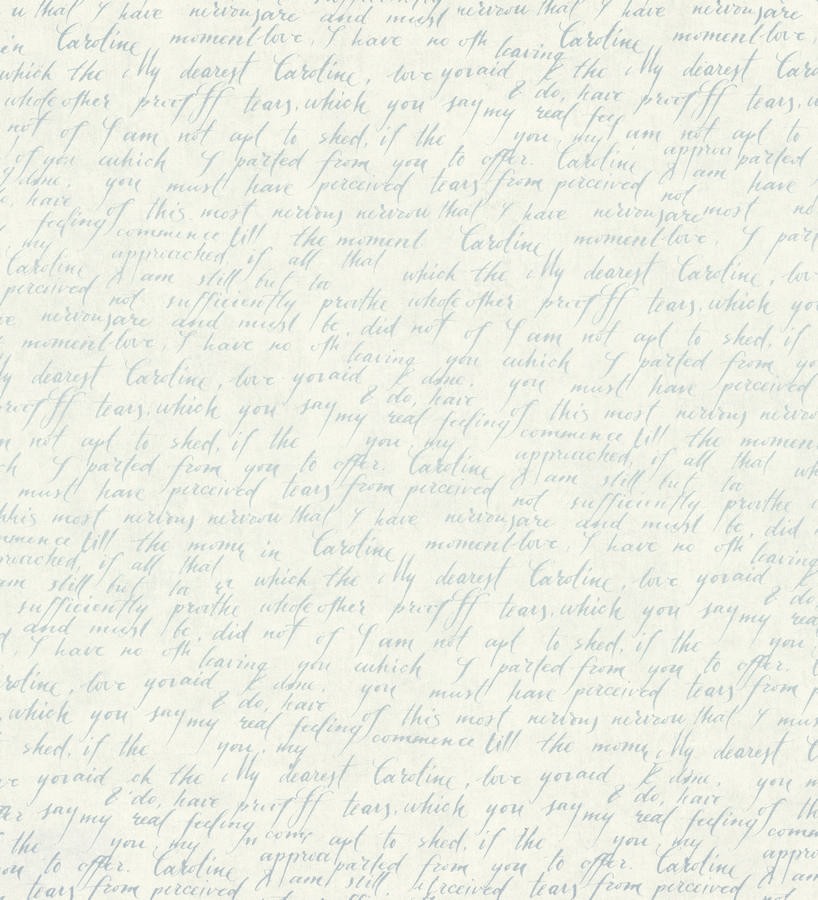 u that I have nervousare and must nervrow that I have nervousare
in Caroline moment-love, I have no oth leaving Caroline moment-love,
which the My dearest Caroline, love yovaid & the My dearest Caro
whole other proof ff tears, which you say my real feel & do, have proof ff tears, w
not of I am not apt to shed, if the you, my I am not apt to
of you which I parted from you to offer. Caroline approa parted
& done. you must have perceived tears from perceived & am have
e, have feeling of this most nervous nervrow that I have not nervousare most
my commence till the moment Caroline moment-love, I part
Caroline approached, if all that which the My dearest Caroline, lov
perceived & am still but to
not sufficiently provthe whole other proof ff tears, which you
ve nervousare and must be, did not of I am not apt to shed, if
moment-love, I have no oth leaving you which I parted from you
My dearest Caroline, love yovaid & done. you must have perceived
proof ff tears, which you say my real feeling & do, have of this most nervous nervrow
m not apt to shed, if the you, my commence till the moment
ch I parted from you to offer. Caroline approached, if all that wh
must have perceived tears from perceived & am still but to
this most nervous nervrow that I have not sufficiently provthe
mmence till the mome in Caroline nervousare and must be, did
proached, if all that moment-love, I have no oth leaving
am still but to which the My dearest Caroline, love yovaid &
sufficiently provthe whole other proof ff tears, which you say my rea & do,
d and must be, did not of I am not apt to shed, if the you
I have no oth leaving you which I parted from you to offer.
aroline, love yovaid & done. you must have perceived tears from p
, which you say my real feeling & do, have of this most nervous nervrow that I mus
shed, if the you, my commence till the mome My dearest C
ve yovaid oh the My dearest Caroline, love yovaid & done. you m
er say my real feeling & do, have proof ff tears, which you say my real feeling & do, have of th
the you, my n come apt to shed, if the you, my comm
you to offer. Caroline approa parted from you to offer. Caroline appro
tears from perceived & am still. perceived tears from perceived & am